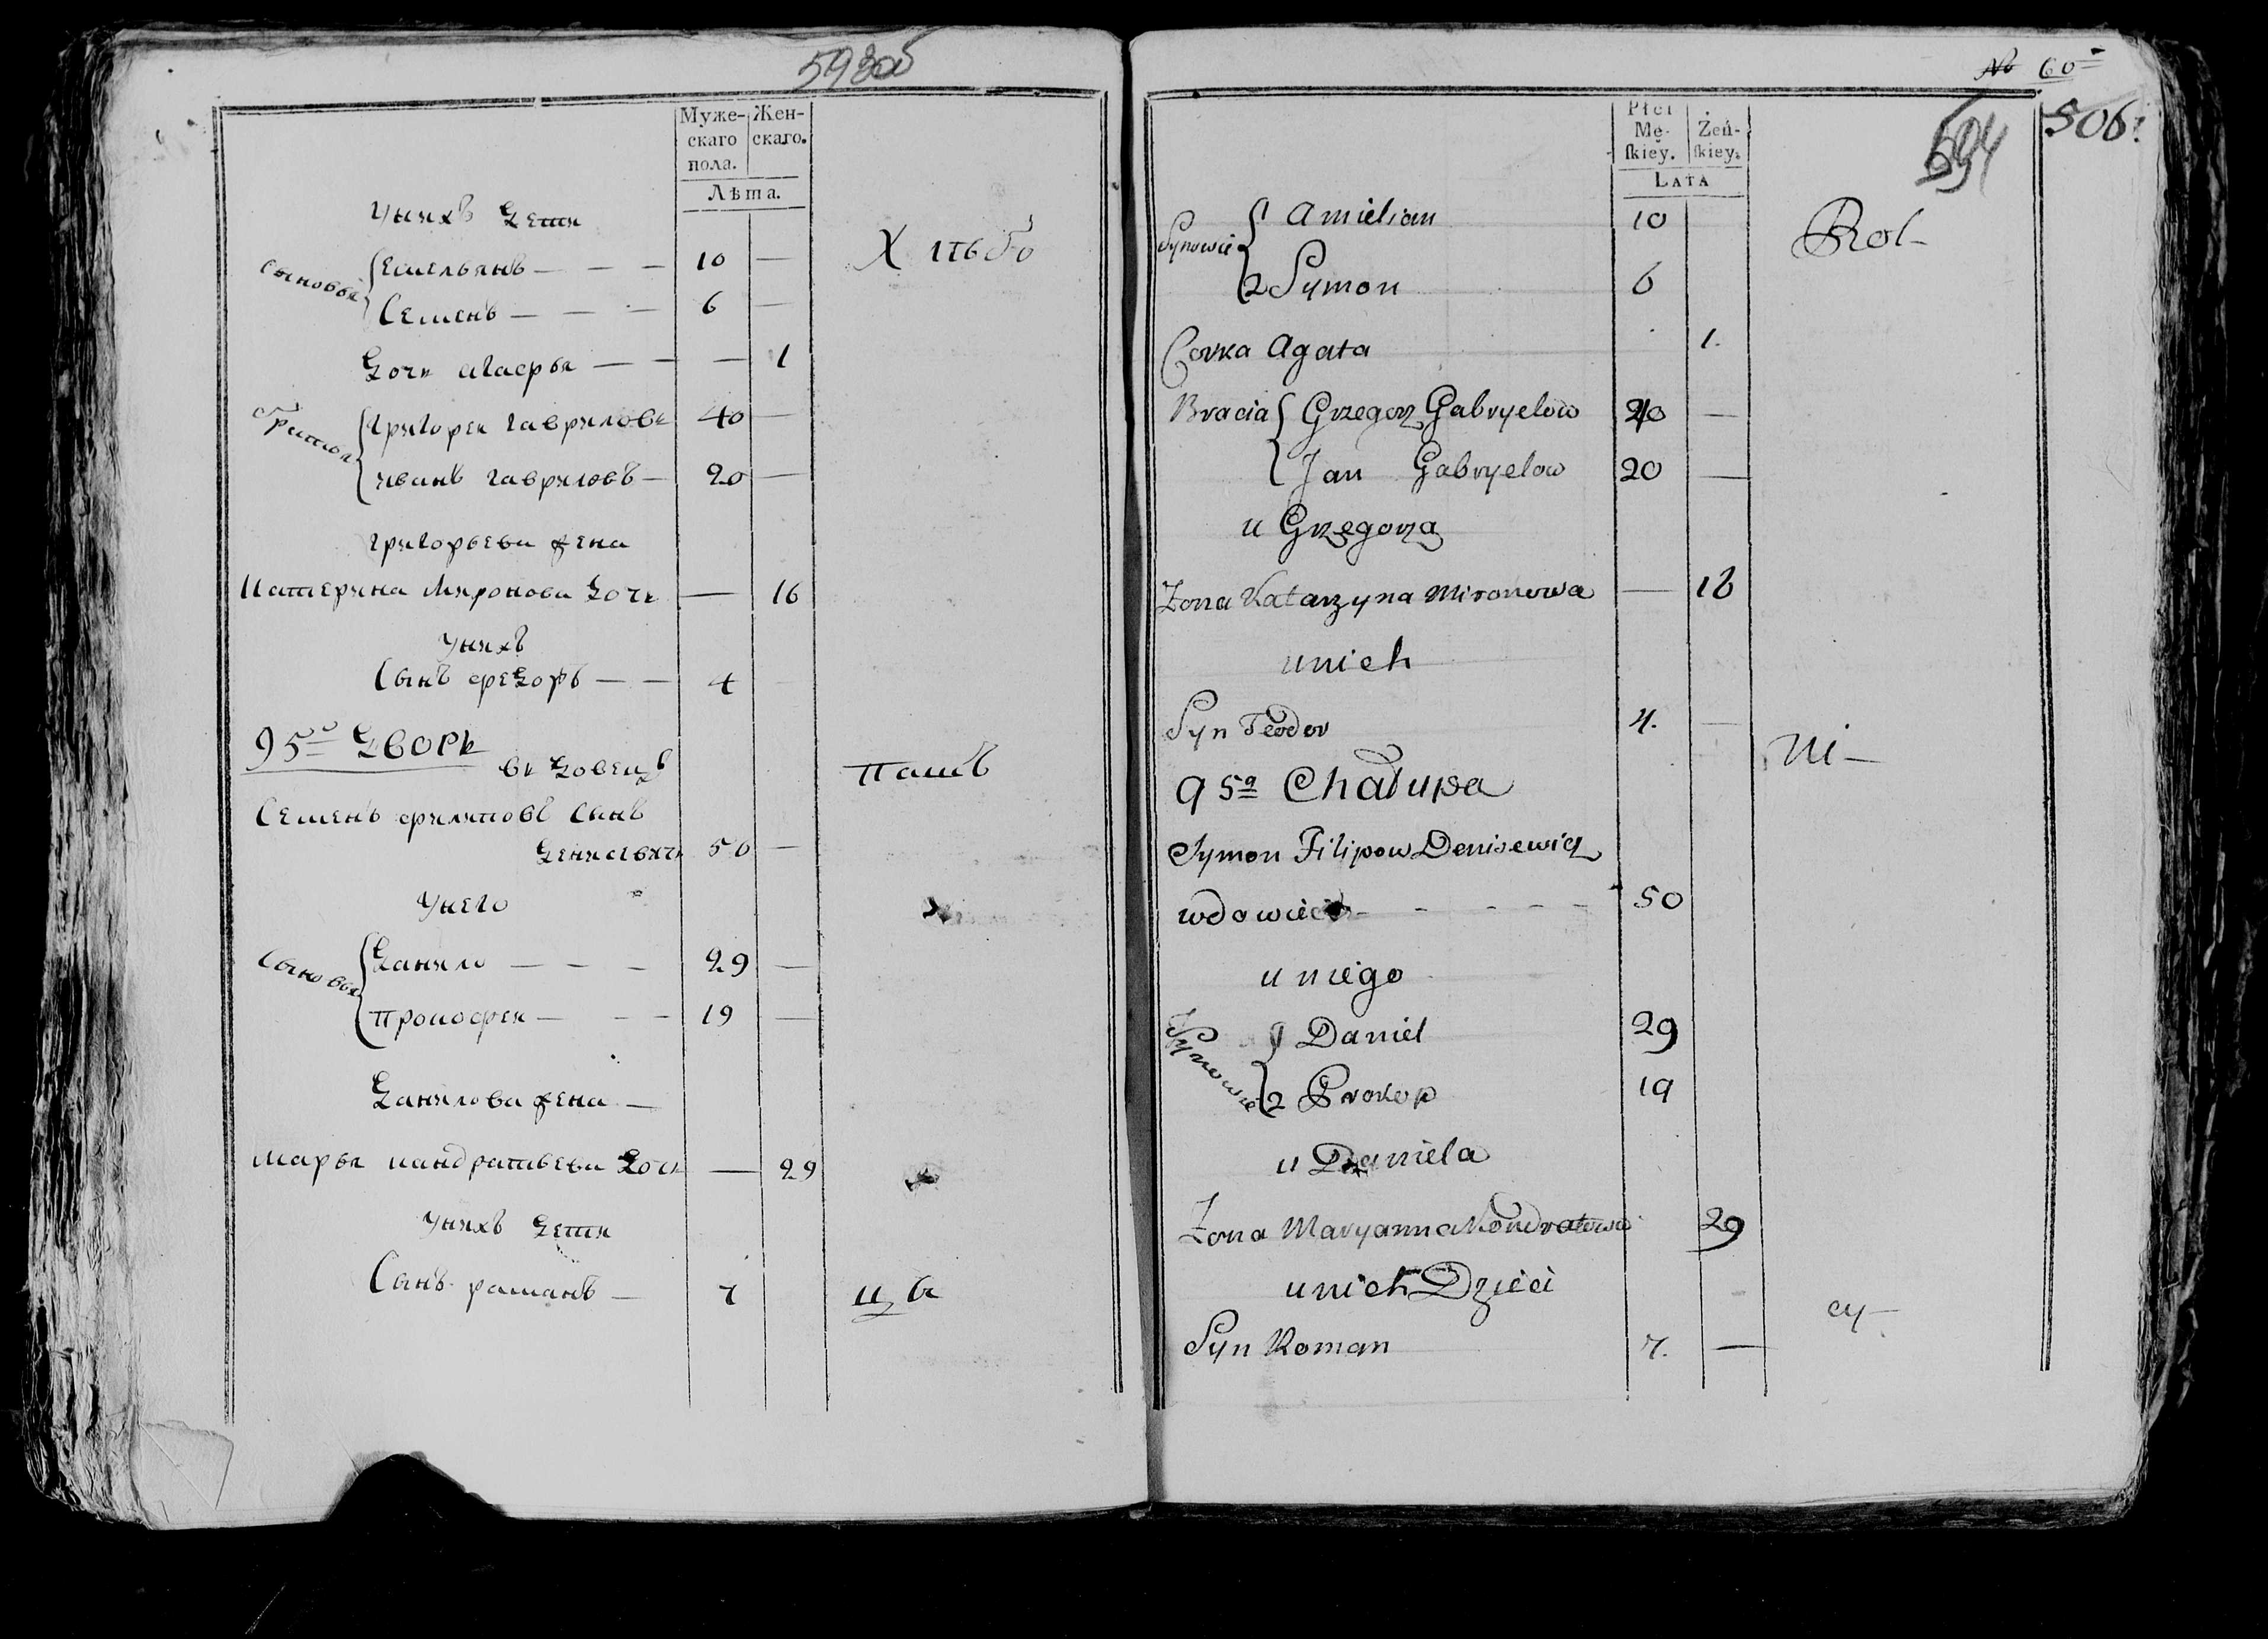 593об
Муже- Жен-
скаго скаго.
пола.
Лѣта.
У нихъ дети
Сыновья Емельянъ — — — 10 —
Хлѣбо
Семенъ — — — 6 —
дочь — — — 1
братья григореи гавриловъ 40 —
иванъ гавриловъ — 20 —
григорьева жена
катерина миронова дочь — 16
У нихъ
Сынъ федоръ — — 4
95й дворъ
вдовецъ
пашъ
Семенъ филиповъ сынъ
денисевичъ 50 —
У него
Сыновья данило — — — 29 —
прокофеи — — — 19 —
данилова жена —
марья кандратьева дочь — 29
У нихъ дети
Сынъ раманъ — 7
цы
№ 60
594
506
Płci
Mę- Żeń-
ſkiey. ſkiey.
LATA
Synowie { 1 Amielian 10
Rol-
2 Symon 6
Corka Agata 1.
Bracia { Grzegorz Gabryelow 40 —
Jan Gabryelow 20 —
u Grzegorza
Żona Katarzyna Mironowa — 16
u nich
Syn Teodor 4. —
ni-
95a Chałupa
Symon Filipow Denisewicz
wdowiec - - - - - 50
u niego
Synowie { 1 Daniel 29
2 Prokop 19
u Daniela
Żona Maryanna Kondratowa 29
u nich Dzieci
cy-
Syn Roman 7. —